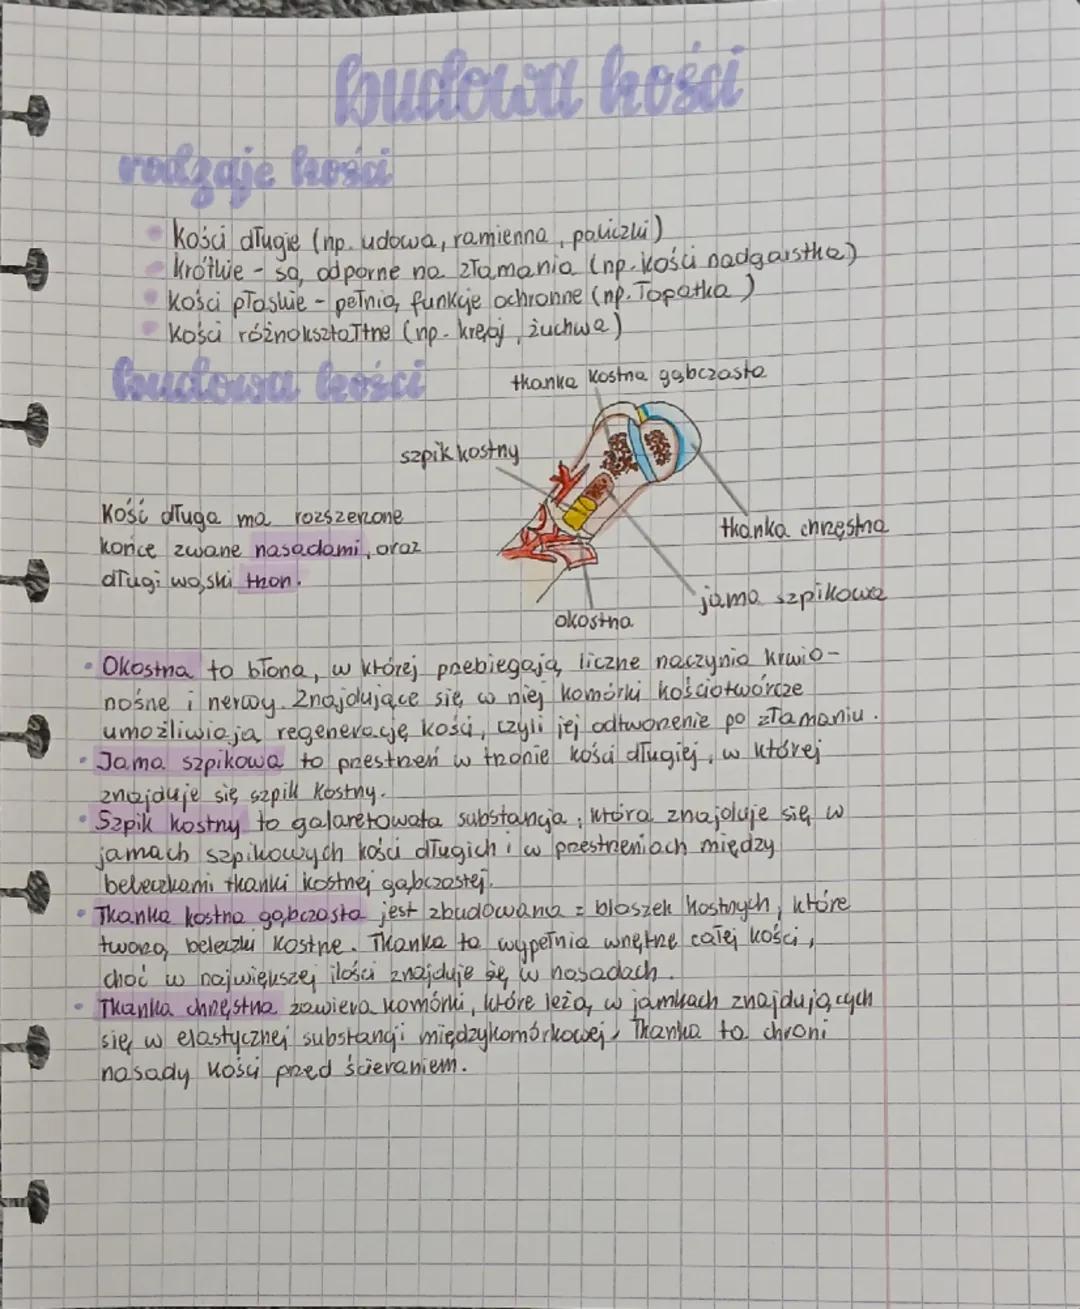 budowa kości
rodzaje kości
kości długie (np. udowa, ramienna, paliczki)
krótkie - są odporne na złamania (np. kości nadgarstka)
kości płaskie - pełnią funkcje ochronne (np. łopatka)
kości różnokształtne (np. kręgi, żuchwa)
budowa kości
tkanka kostna gąbczasta
szpik kostny
Kość długa ma rozszerzone
końce zwane nasadami, oraz
długi wąski trzon.
tkanka chrzęstna
jama szpikowa
okostna
Okostna to błona, w której przebiegają liczne naczynia krwio-
nośne i nerwy. Znajdujące się w niej komórki kościotwórcze
umożliwiają regenerację kości, czyli jej odtworzenie po złamaniu.
Jama szpikowa to przestrzeń w trzonie kości długiej, w której
znajduje się szpik kostny.
Szpik kostny to galaretowata substancja, która znajduje się w
jamach szpikowych kości długich i w przestrzeniach między
beleczkami tkanki kostnej gąbczastej.
Tkanka kostna gąbczasta jest zbudowana z blaszek kostnych, które
tworzą beleczki kostne. Tkanka ta wypełnia wnętrze całej kości,
choć w największej ilości znajduje się w nasadach.
Tkanka chrzęstna zawiera komórki, które leżą w jamkach znajdujących
się w elastycznej substancji międzykomórkowej. Tkanka ta chroni
nasady kości przed ścieraniem.